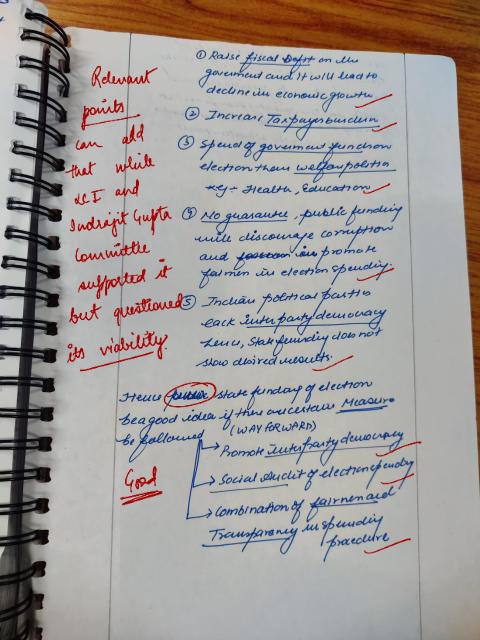 Relevant
points
can add
that while
LCI and
Indrajit Gupta
Committee
supported it
but questioned
its viability.
① Raise fiscal Deft on the
government and it will lead to
decline in economic growth
② Increase Taxpayers burden
③ Spend of government fund on
election them welfare politics
eg:- Health, Education
④ No guarantee, public funding
will discourage corruption
and promote
fairnen in election spending.
⑤ Indian political parties
lack interparty democracy
hence, State funding does not
show desired results.
Hence state funding of election
be a good idea if there are certain Measure
be followed (WAY FORWARD)
→ Promote interparty democracy
→ Social Audit of election spending
→ Combination of fairnen and
Transparency in spending
Good